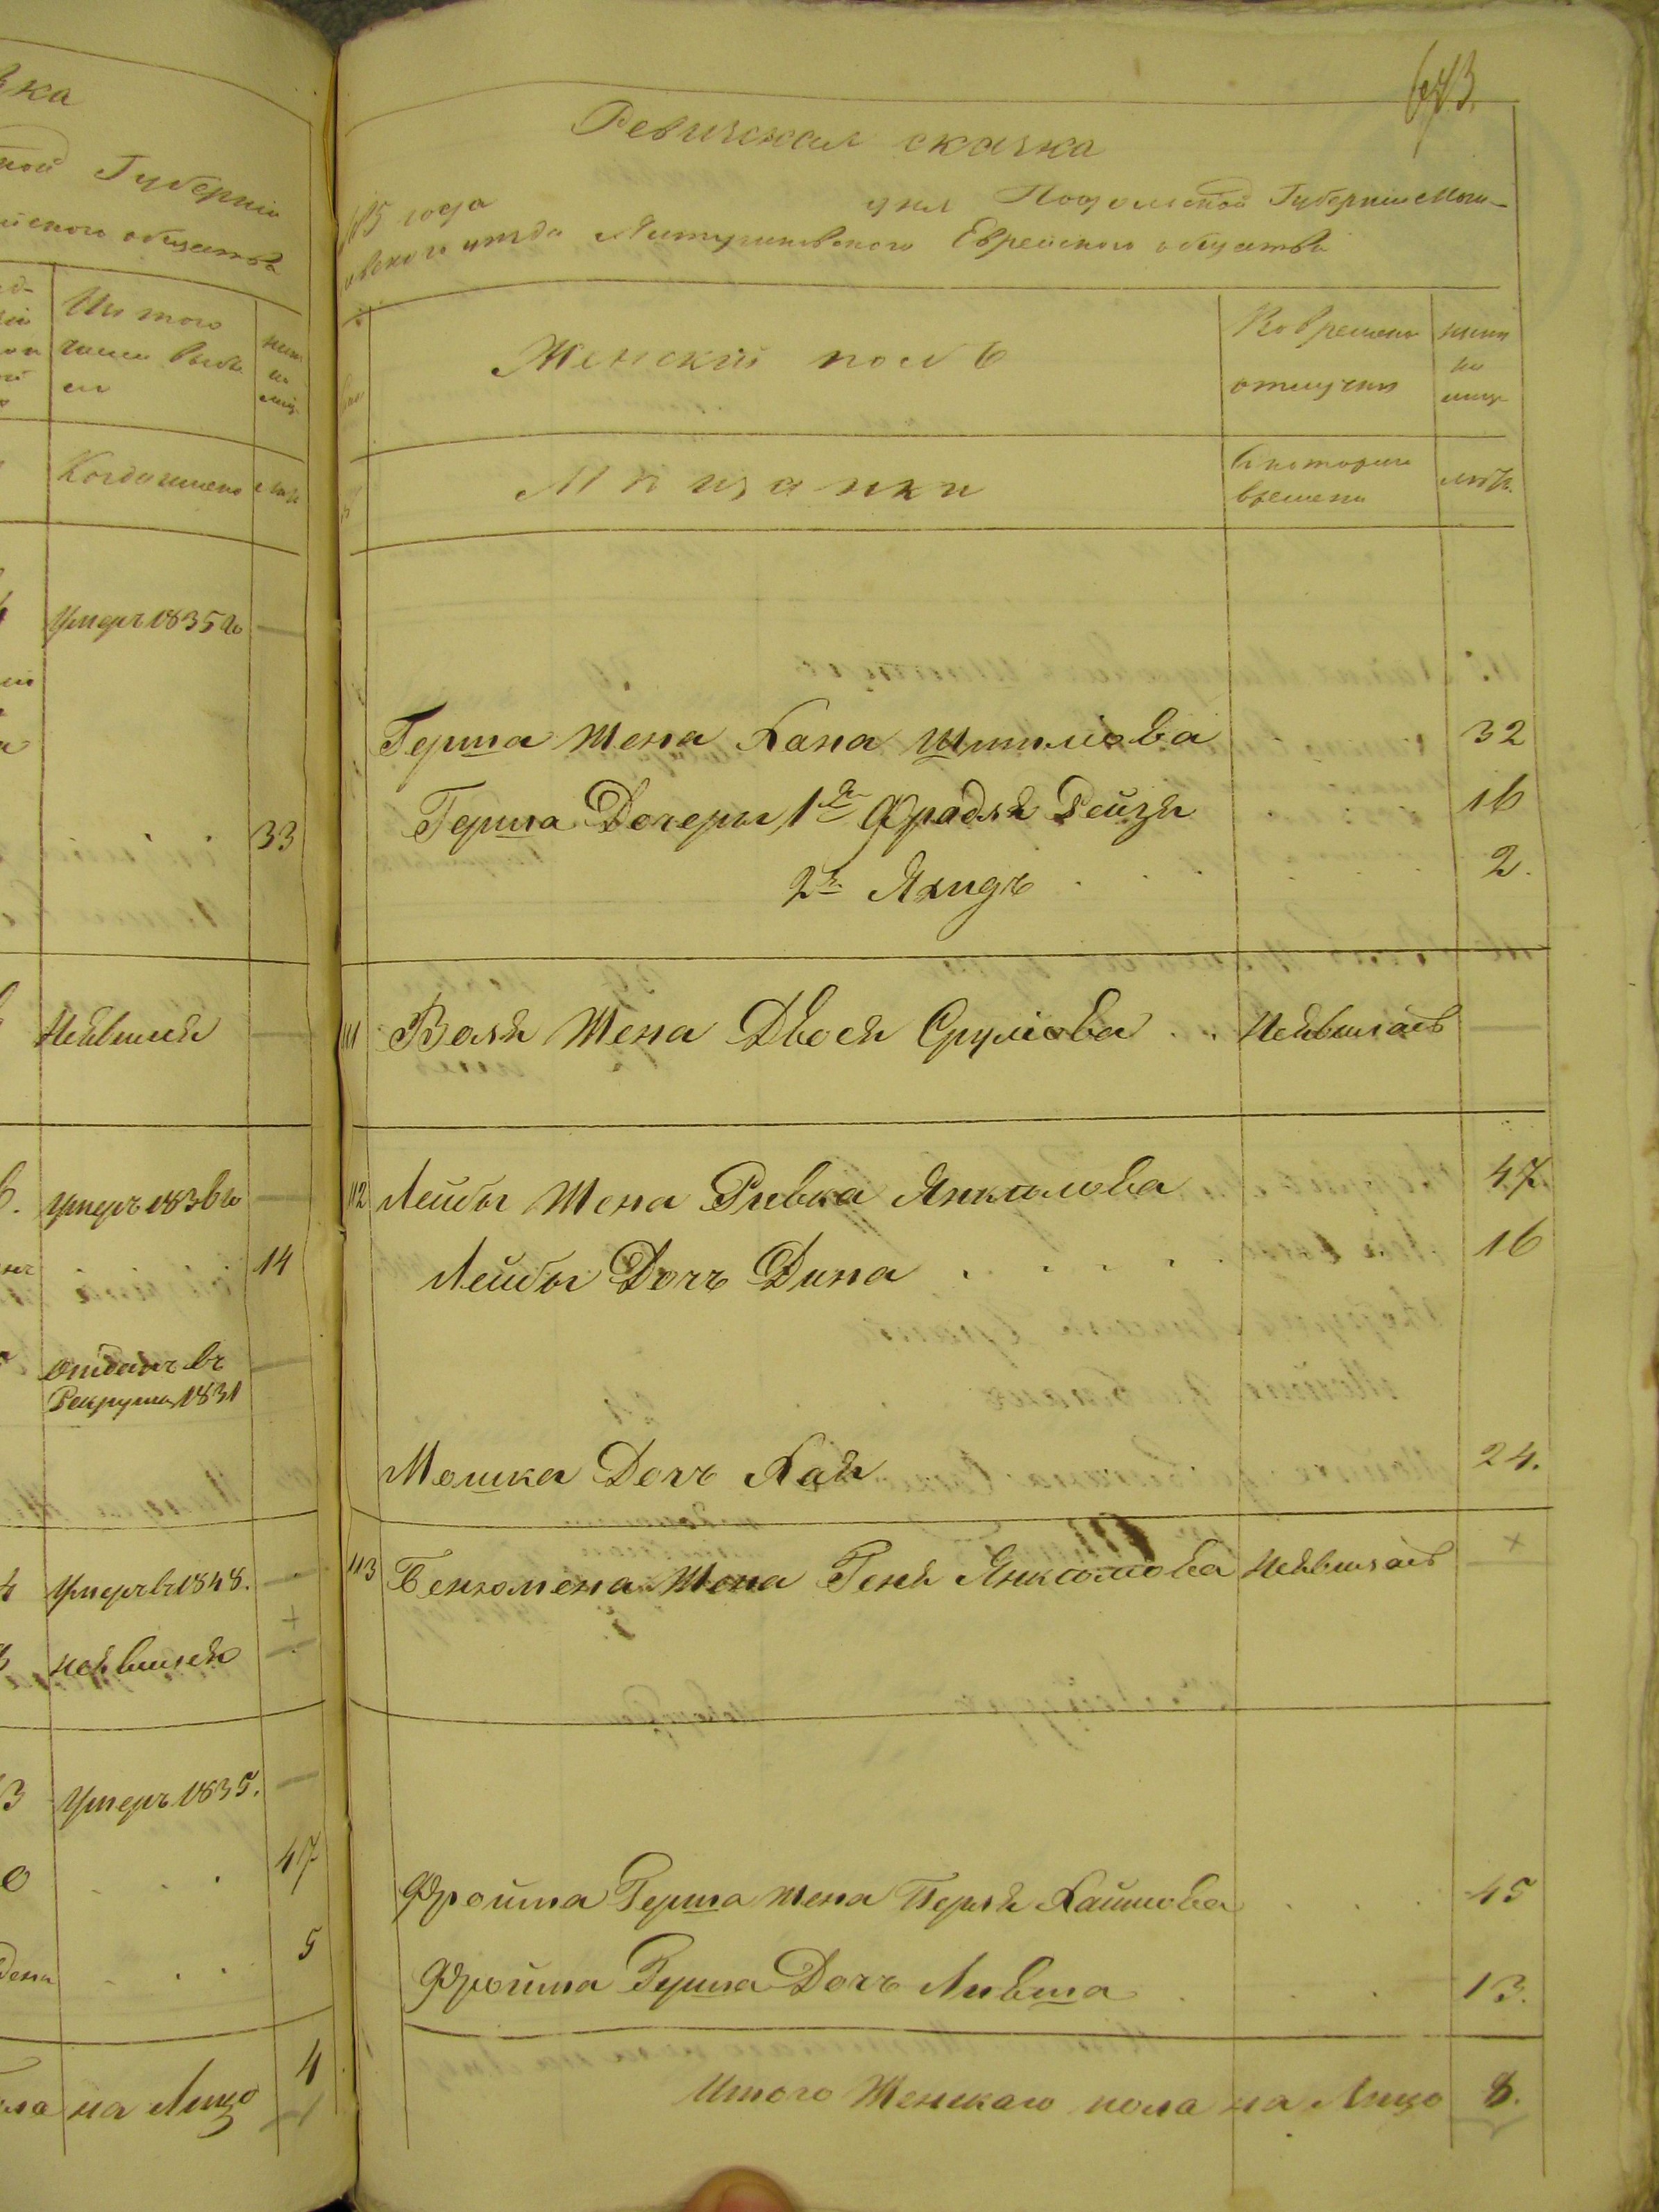 ка
ной Губерніи
йского общества
Изъ того
числа выбы
ли
Когда именно
лѣта
Умеръ 1835 го
33
Неявился
Умеръ 1836 го
14
отданъ въ
Рекруты 1831
Умеръ в 1848.
неявился
Умеръ 1835.
47
5
4
на Лицо
643.
Ревизская сказка
года
дня Подольской Губерніи Моги-
левского уезда Евреиского общества
Женскій полъ
Во временной
отлучки
нынѣ
на
лицо
Мѣщанки
Съ котораго
времени
лѣта.
Герша Жена Хана Шмилiова 32
Герша Дочеры 1я Фрадля Рейзя 16
2я Яхидъ 2.
111 Воля Жена Двося Срулiова Неявилась
112 Лейбы Жена Ривка Янкелова 47
Лейбы Дочъ Дина 16
Мошка Дочъ Хая 24.
113 Бенюмена Жена Геня Янкелiова Неявилась
Фройма Герша жена Перля Хаимова 45
Фройма Герша Дочъ Лившa 13.
Итого Женскаго пола на Лицо 8.